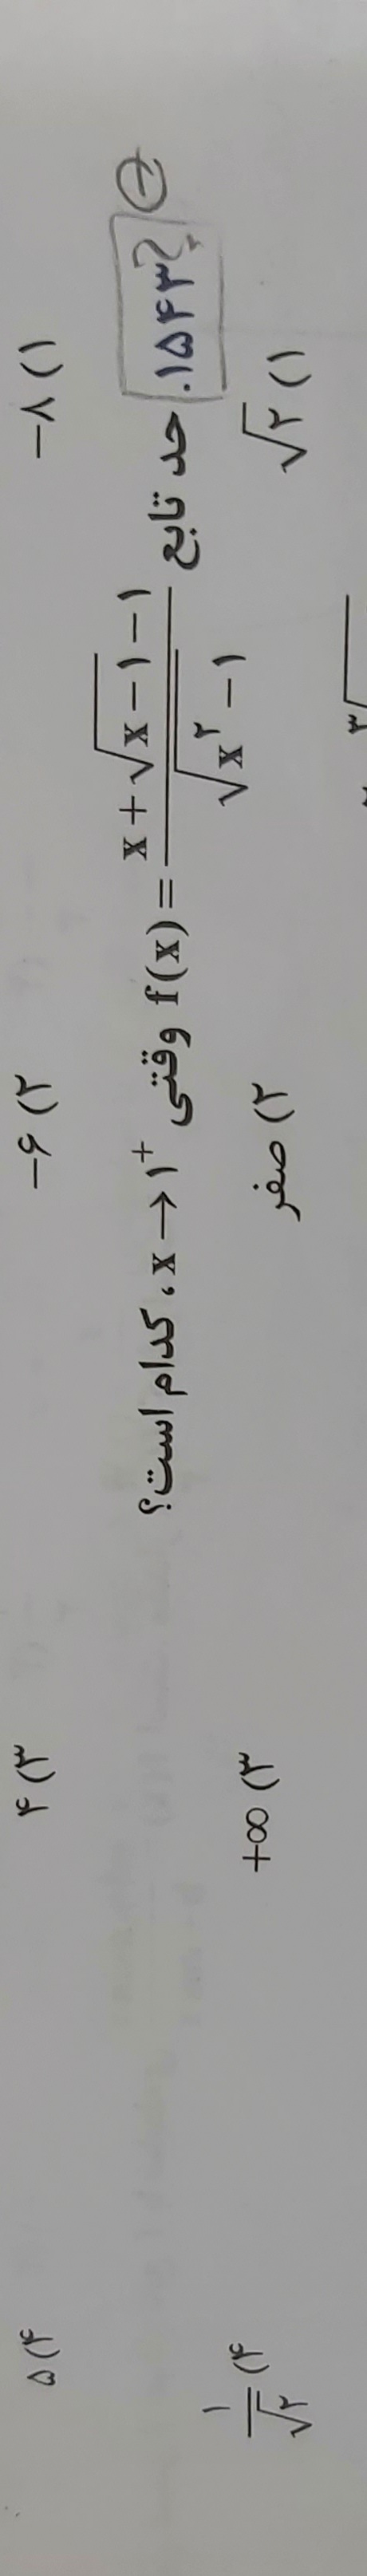 ۱) -۸ ۲) -۶ ۳) ۴ ۴) ۵
۱۵۴۳. حد تابع f(x) = (x + √(x - ۱) - ۱) / √(x^۲ - ۱) وقتی x → ۱^+، کدام است؟
۱) √۲ ۲) صفر ۳) +∞ ۴) ۱/√۲